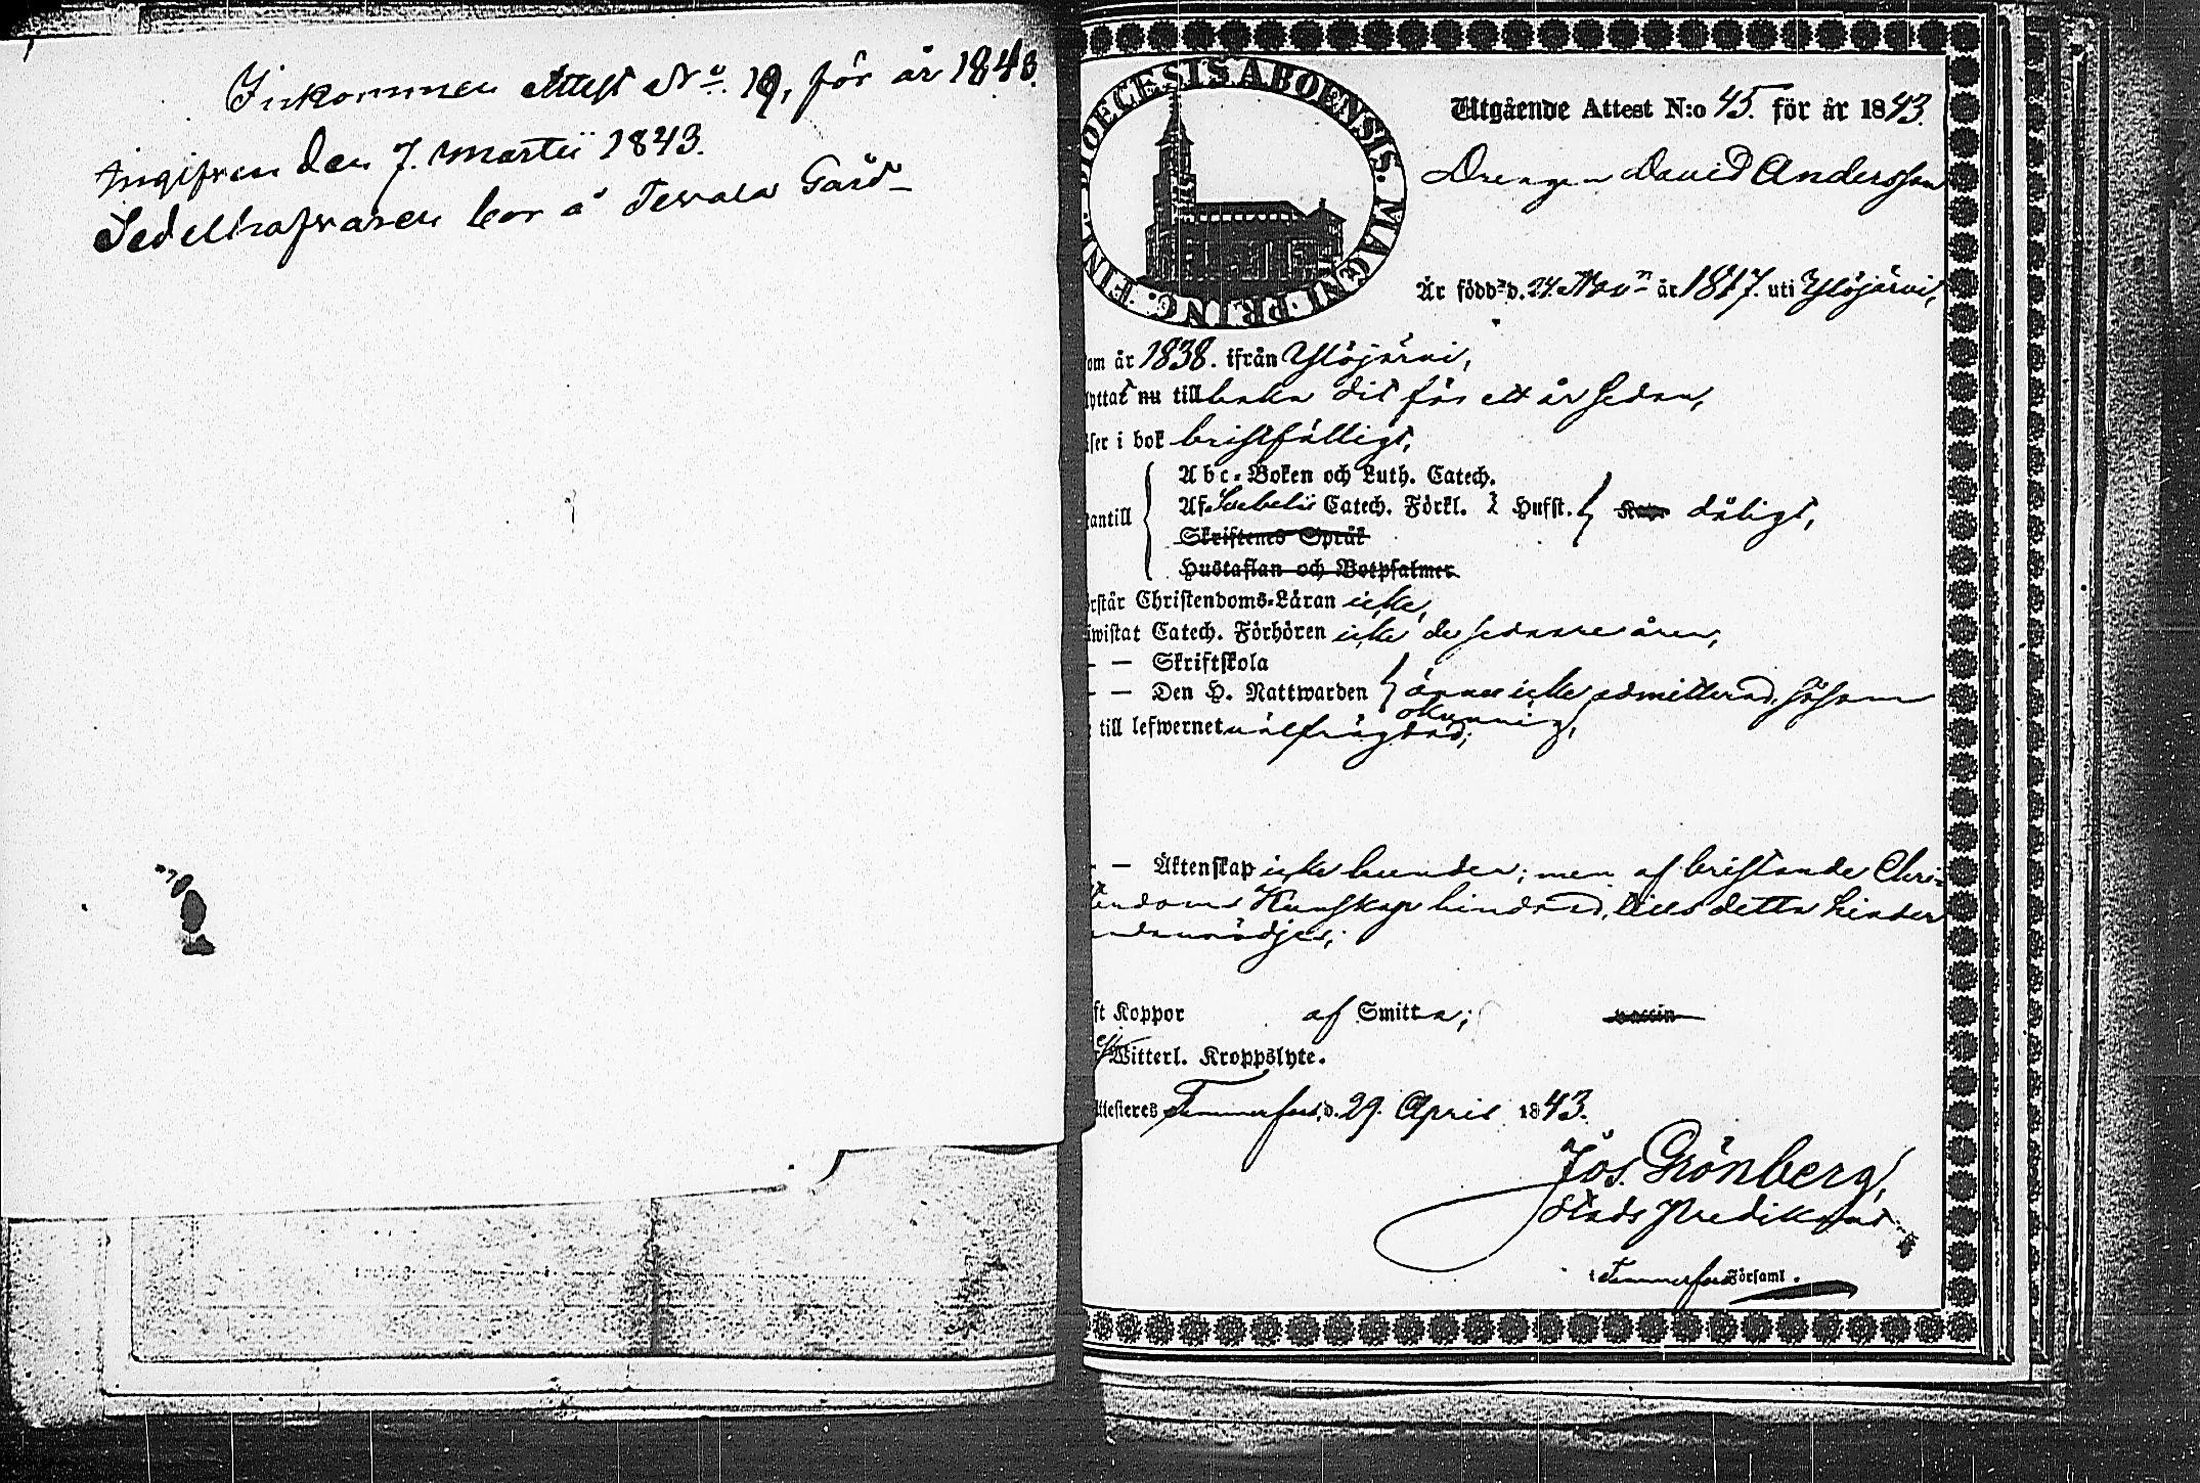 Inkommen Attest No. 19, för år 1843.
Ingifven den 7. Martii 1843.
Sedelhafvaren bor å Tevala Gård
DIOECESIS ABOENSIS. MAGNI PRINC. FINL.
Utgående Attest N:o 45. för år 1843.
Drengen David Andersson
Är född d. 24. Nov:r år 1817. uti Ylöjärvi,
om år 1838. ifrån Ylöjärvi,
lyttat nu till baka dit för ett år sedan,
äser i bok bristfälligt,
Abc-Boken och Luth. Catech.
antill Af Svebelii Catech. Förkl. 2 Hufst. dåligt,
Skriftenes Språk
Hustaflan och Botpsalmer
rstår Christendoms-Läran icke,
iwistat Catech. Förhören icke de sednare åren,
— — Skriftskola
— — Den H. Nattwarden ännu icke admitterad, såsom
okunnig,
till lefwernet välfrägdad;
— — Äktenskap icke bunden; men af bristande Chri-
stendoms Kunskap hindrad, tills detta hinder
undanrödjes;
ft Koppor af Smitta; vaccin
Witterl. Kroppslyte.
Attesteras Tammerfors, d. 29. April 1843.
Jos. Grönberg,
Stads Predikant
i Tammerfors Församl.